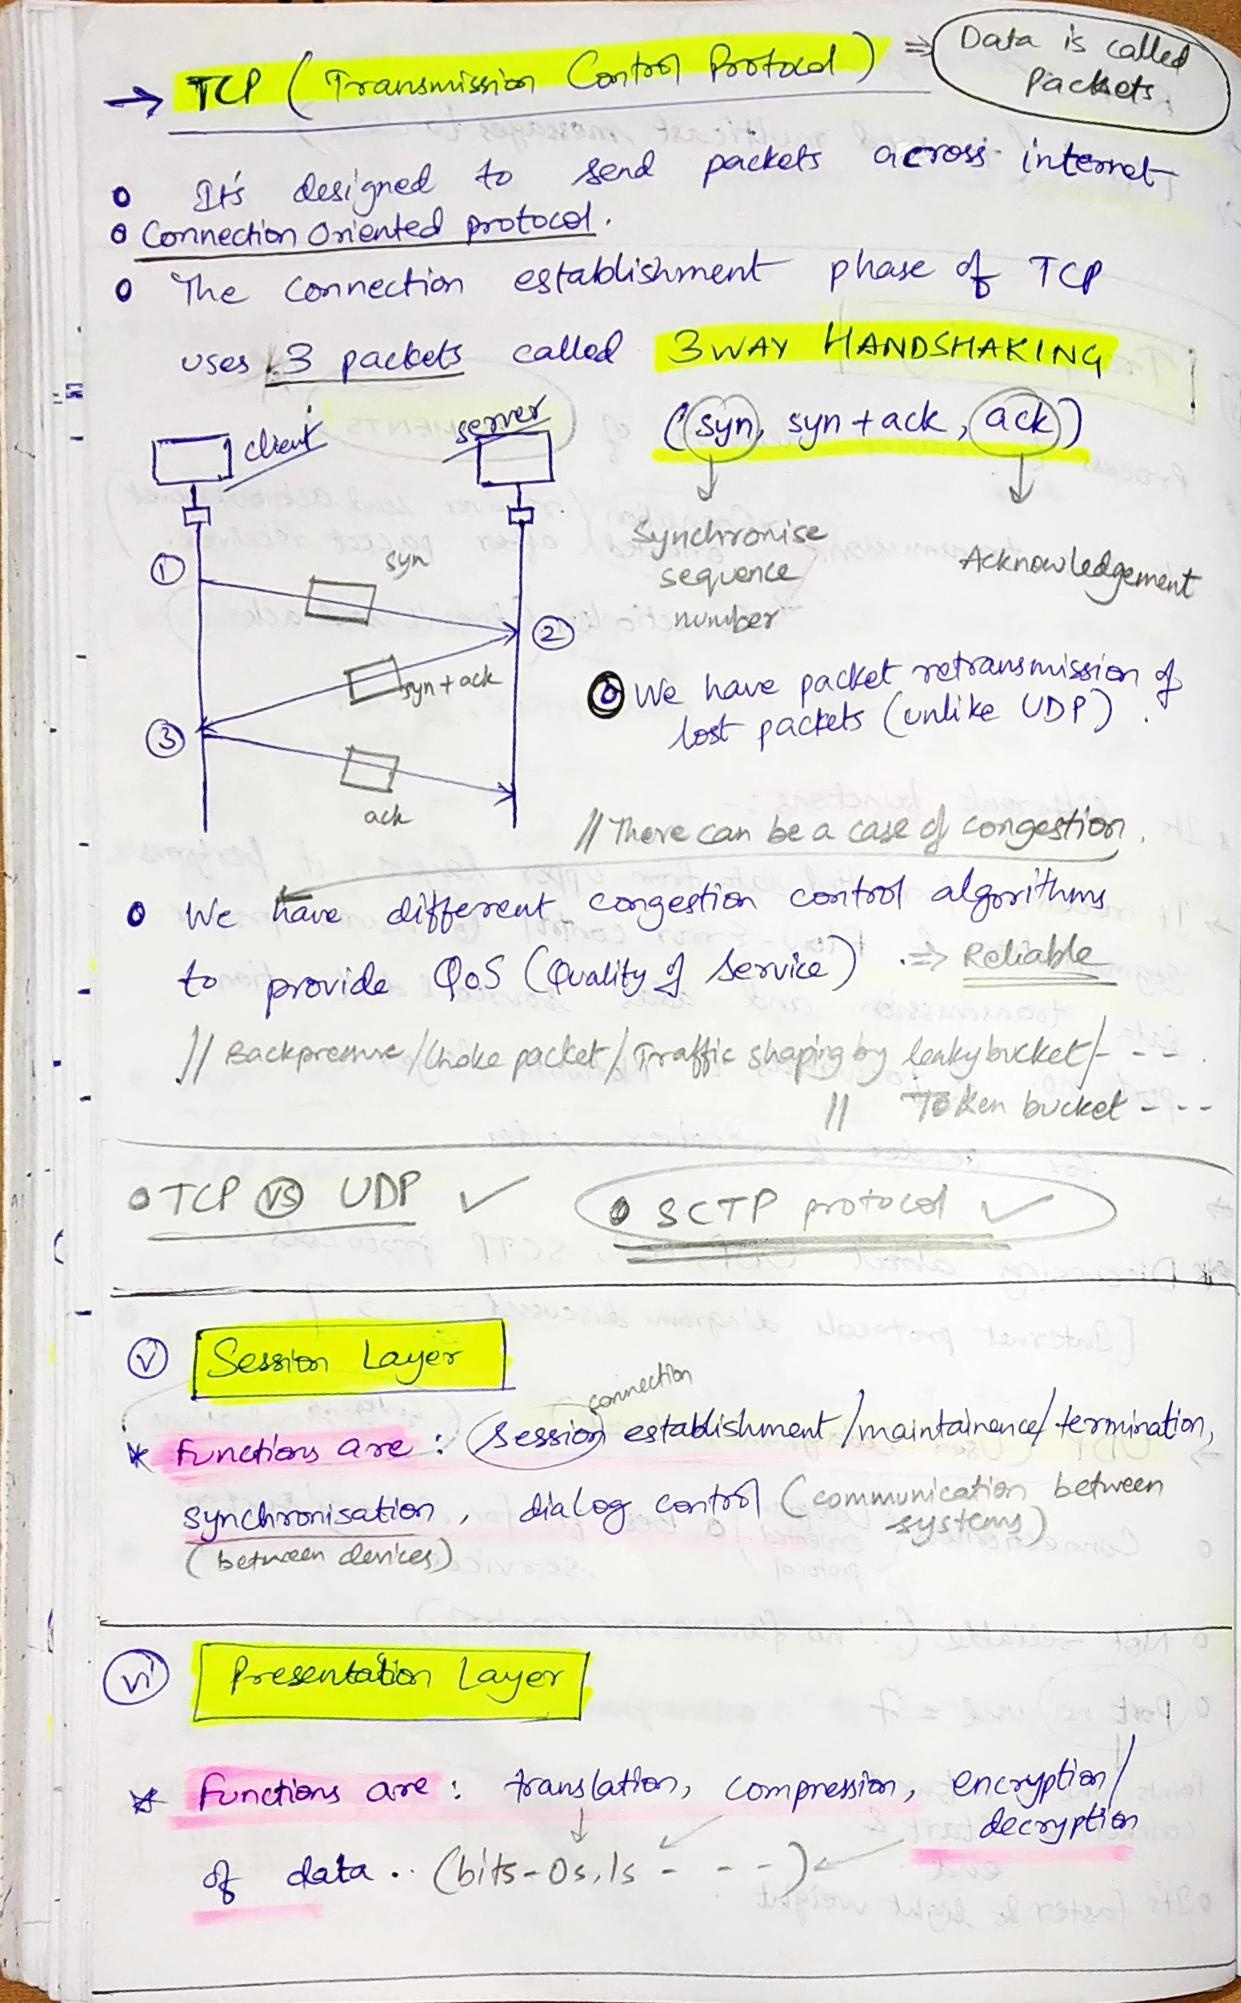 → TCP (Transmission Control Protocol) ⇒ Data is called
Packets.
o It's designed to send packets across internet
o Connection Oriented protocol.
o The connection establishment phase of TCP
uses 3 packets called 3 WAY HANDSHAKING
(syn, syn + ack, ack)
client
server
Synchronise
sequence
number
Acknowledgement
1
syn
2
syn + ack
3
ack
o We have packet retransmission of
lost packets (unlike UDP).
// There can be a case of congestion.
o We have different congestion control algorithms
to provide QoS (Quality of Service) .⇒ Reliable
// Backpressure/Choke packet/Traffic shaping by leaky bucket/- - - .
// Token bucket - - -
o TCP VS UDP ✓ o SCTP protocol ✓
V Session Layer
connection
* Functions are : Session establishment/maintainence/termination,
synchronisation, dialog control (communication between
systems)
(between devices)
vi Presentation Layer
* Functions are : translation, compression, encryption/
decryption
of data .. (bits-0s,1s - - - -)